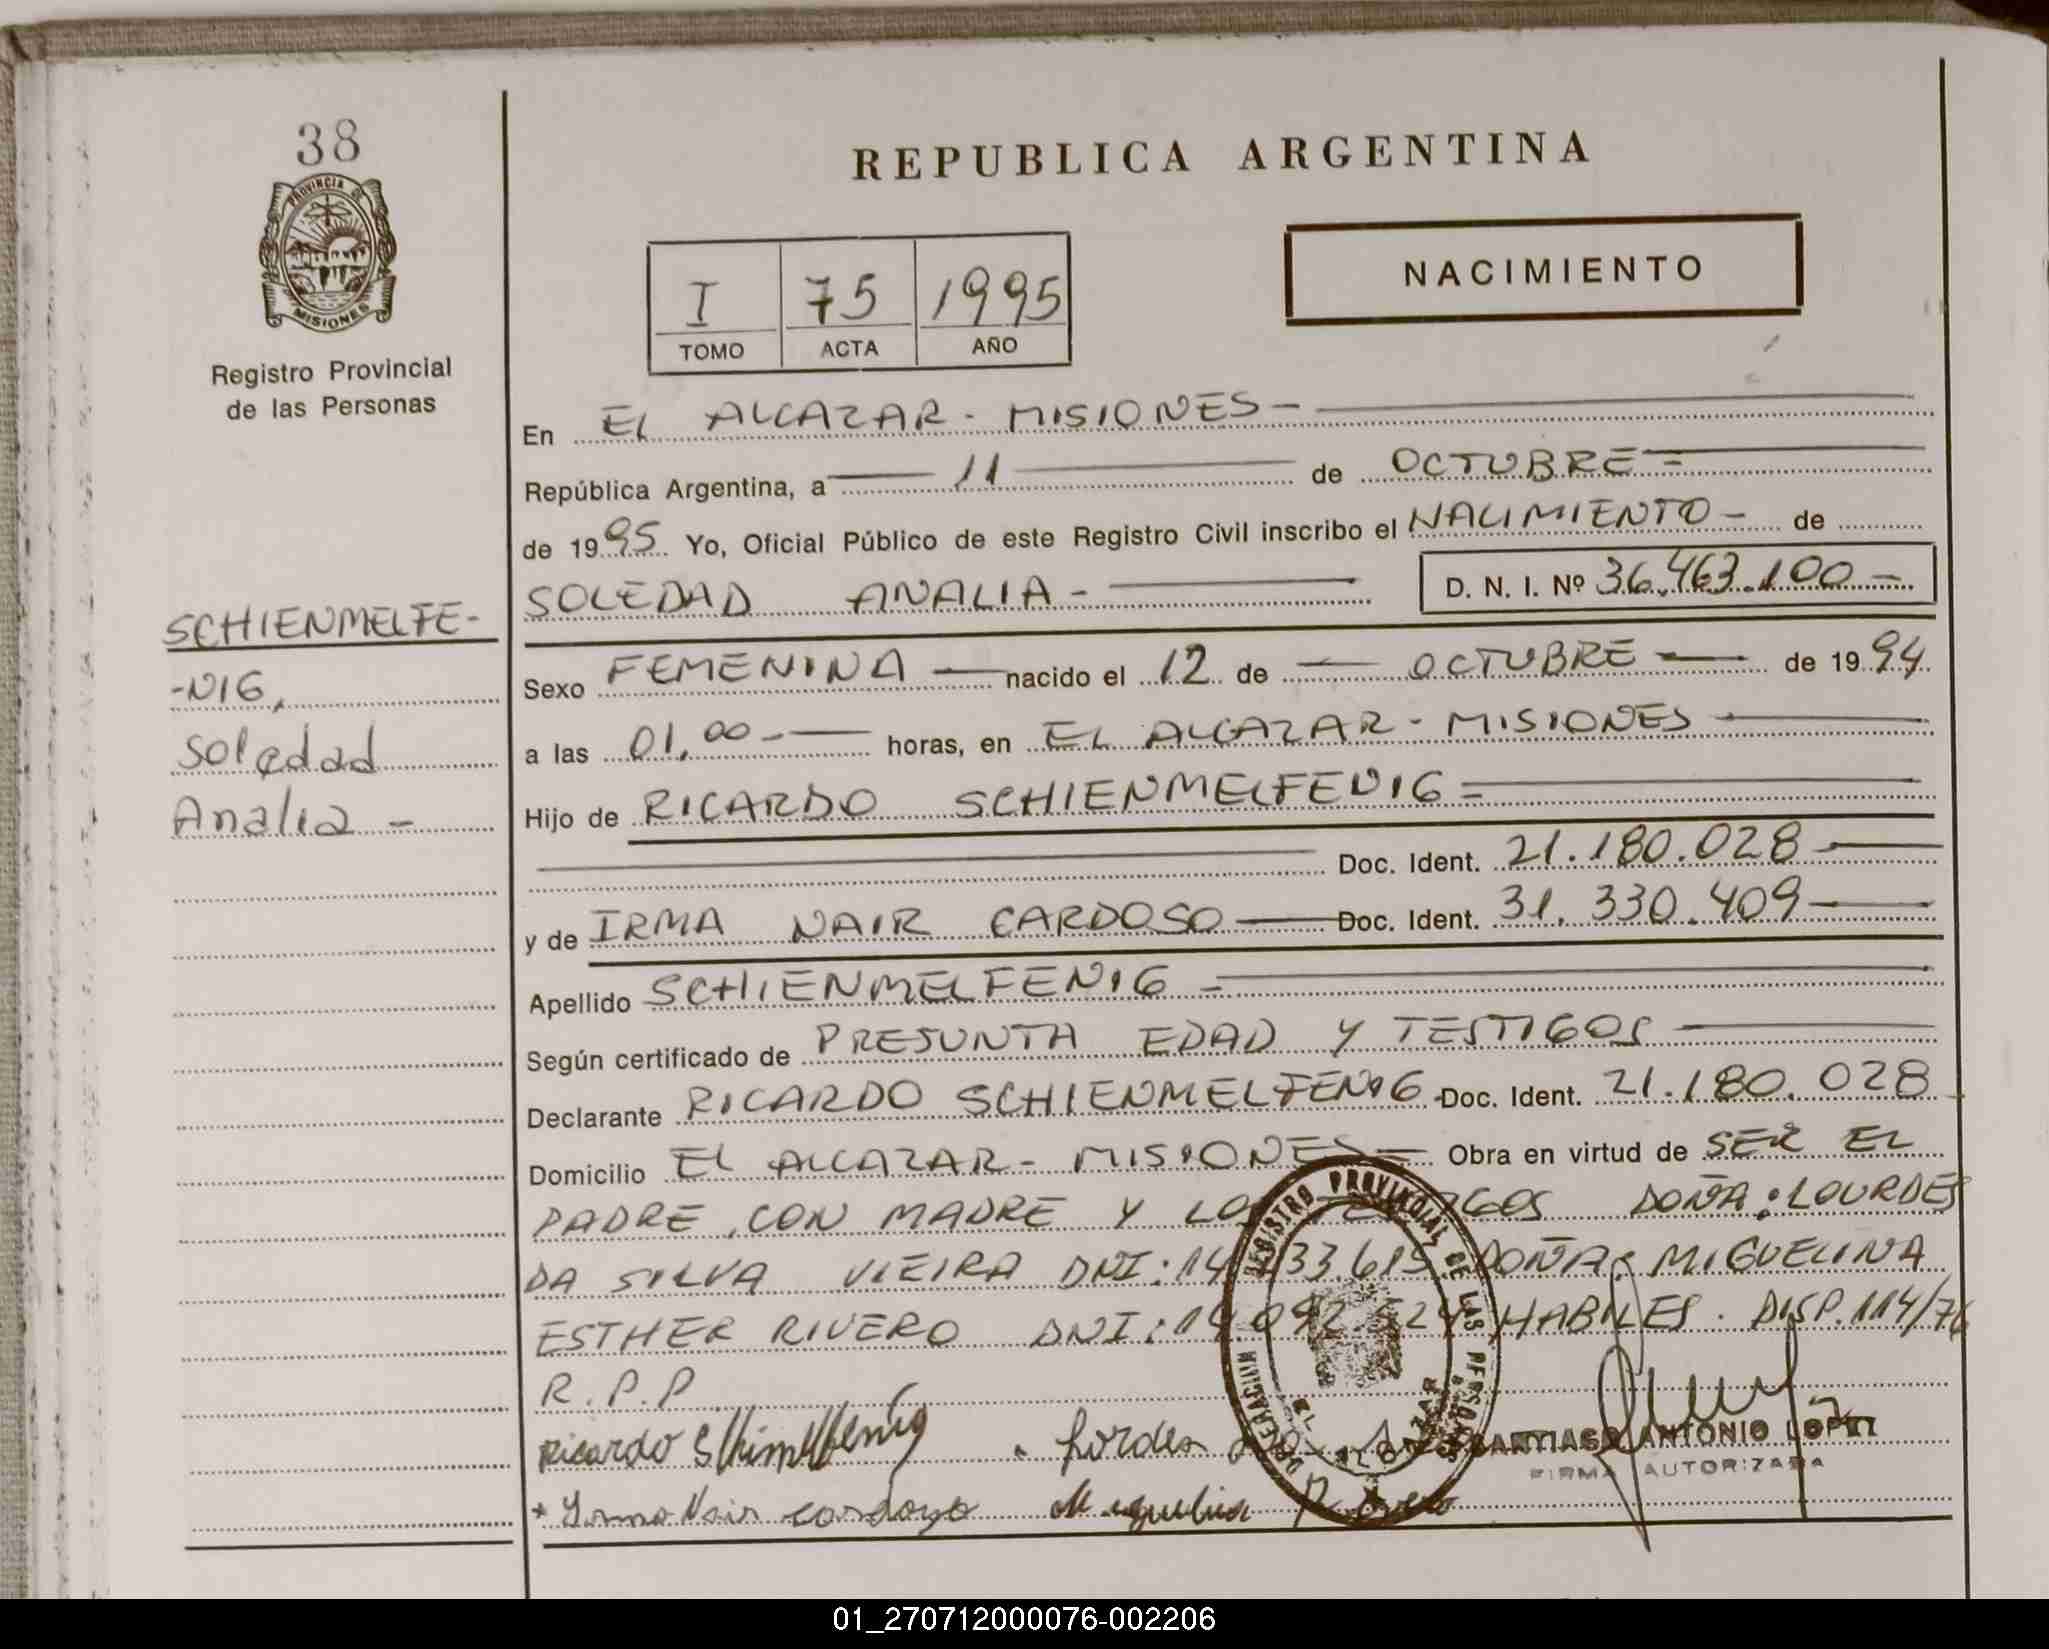 38
PROVINCIA DE
MISIONES
Registro Provincial
de las Personas
SCHIENMELFE-
-NIG,
Soledad
Analia -
REPUBLICA ARGENTINA
I 75 1995
TOMO ACTA AÑO
NACIMIENTO
En EL ALCAZAR - MISIONES -
República Argentina, a 11 de OCTUBRE =
de 1995 Yo, Oficial Público de este Registro Civil inscribo el NACIMIENTO - de
SOLEDAD ANALIA - D. N. I. Nº 36.463.100 -
Sexo FEMENINA - nacido el 12 de - OCTUBRE - de 1994
a las 01,00 - horas, en EL ALCAZAR - MISIONES -
Hijo de RICARDO SCHIENMELFENIG =
Doc. Ident. 21.180.028 -
y de IRMA NAIR CARDOSO - Doc. Ident. 31.330.409 -
Apellido SCHIENMELFENIG =
Según certificado de PRESUNTA EDAD Y TESTIGOS -
Declarante RICARDO SCHIENMELFENIG - Doc. Ident. 21.180.028
Domicilio EL ALCAZAR - MISIONES = Obra en virtud de SER EL
PADRE, CON MADRE Y LOS TESTIGOS DOÑA: LOURDES
DA SILVA VIEIRA DNI: DOÑA: MIGUELINA
ESTHER RIVERO DNI: HABILES. DISP. 114/76
R.P.P
REGISTRO PROVINCIAL DE LAS PERSONAS
DELEGACION
Ricardo
SANTIAGO ANTONIO LOPEZ
FIRMA AUTORIZADA
* Irma Nair cardozo Miguelina
01_270712000076-002206